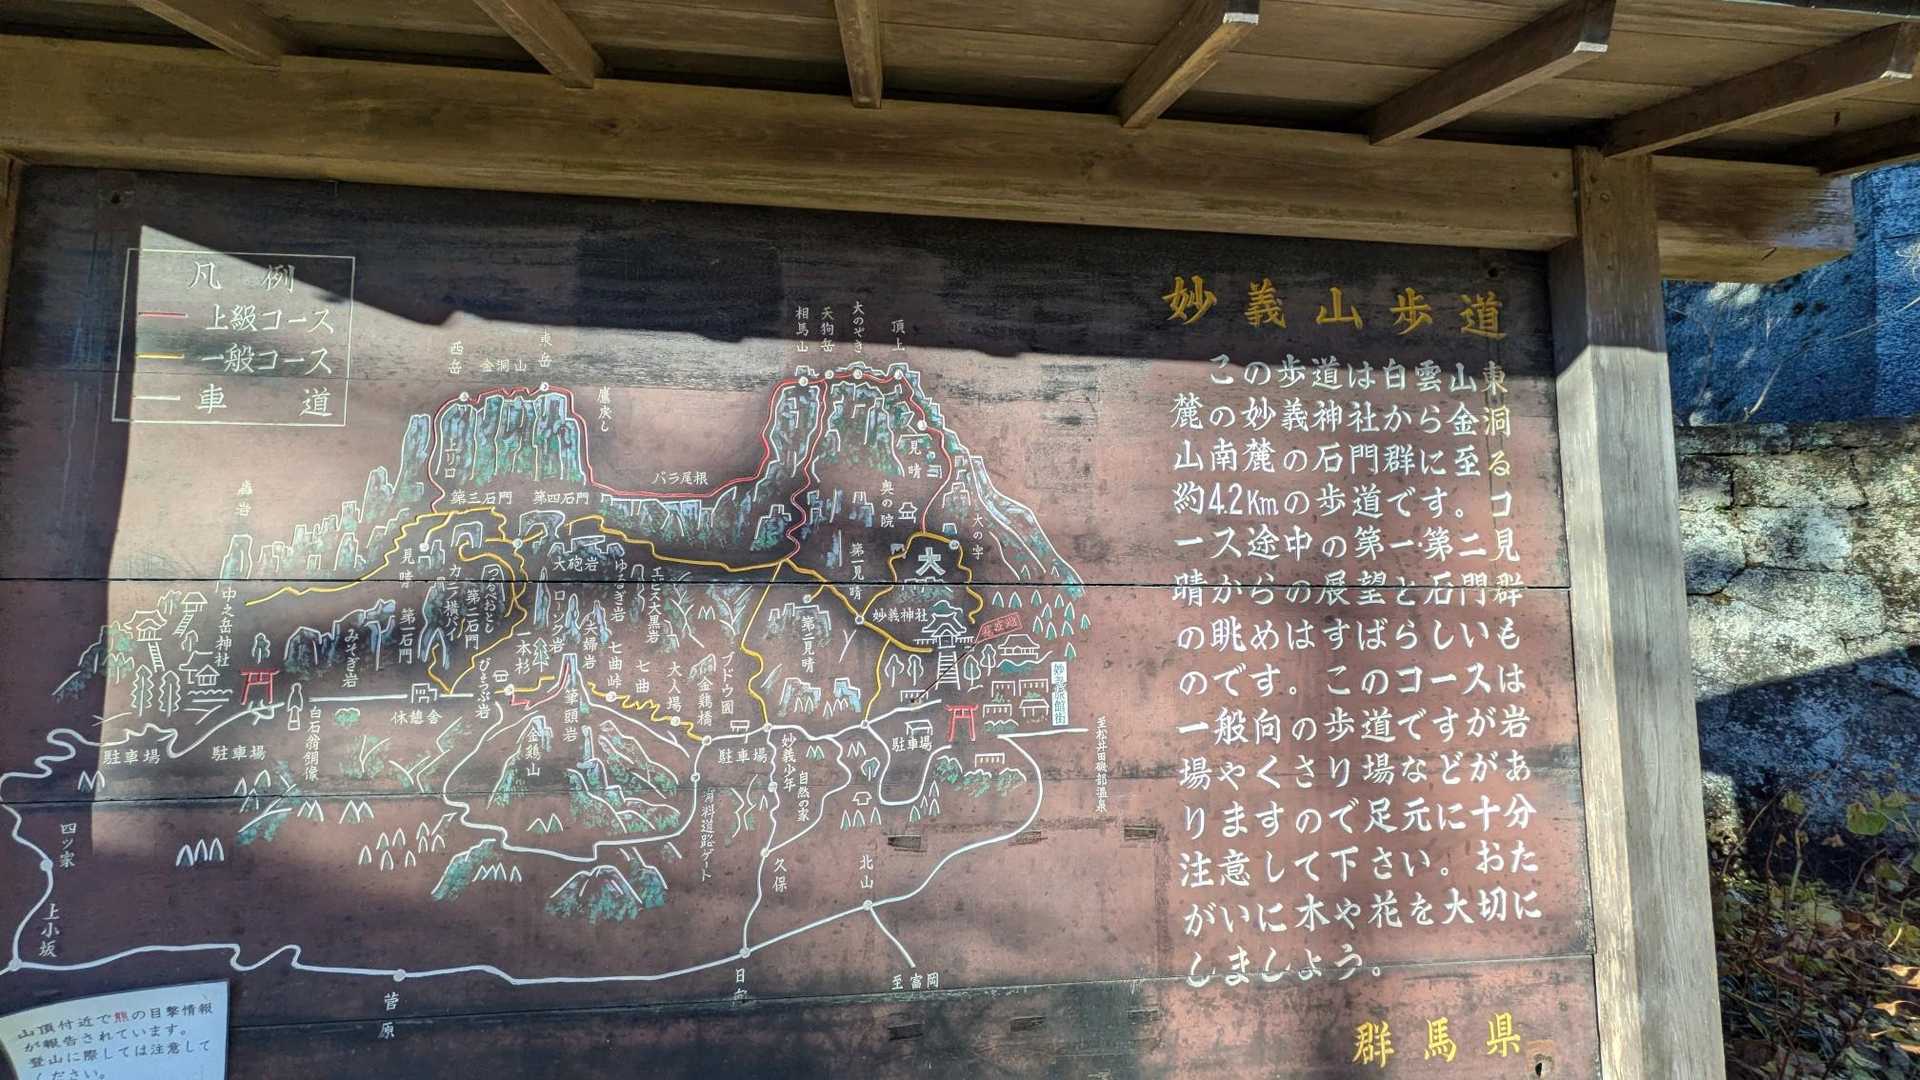 妙義山歩道
この歩道は白雲山東
麓の妙義神社から金洞
山南麓の石門群に至る
約4.2Kmの歩道です。コ
ース途中の第一第二見
晴からの展望と石門群
の眺めはすばらしいも
のです。このコースは
一般向の歩道ですが岩
場やくさり場などがあ
りますので足元に十分
注意して下さい。おた
がいに木や花を大切に
しましょう。
群馬県
凡例
上級コース
一般コース
車道
西岳
金洞山
東岳
鷹戻し
バラ尾根
相馬山
天狗岳
大のぞき
頂上
見晴
奥の院
大の字
大
第一見晴
第二見晴
妙義神社
轟岩
中之岳神社
第三石門
第四石門
見晴
カニノ横バイ
つるべおとし
第二石門
第一石門
みそぎ岩
大砲岩
ゆるぎ岩
ローソク岩
エビス大黒岩
夫婦岩
一本杉
七曲峠
七曲
大人場
金鶏橋
ブドウ園
びょうぶ岩
筆頭岩
金鶏山
休憩舎
白石翁銅像
駐車場
駐車場
駐車場
駐車場
妙義少年
自然の家
有料道路ゲート
久保
北山
至富岡
日向
菅原
上小坂
四ッ家
至松井田磯部温泉
山頂付近で熊の目撃情報
が報告されています。
登山に際しては注意して
ください。